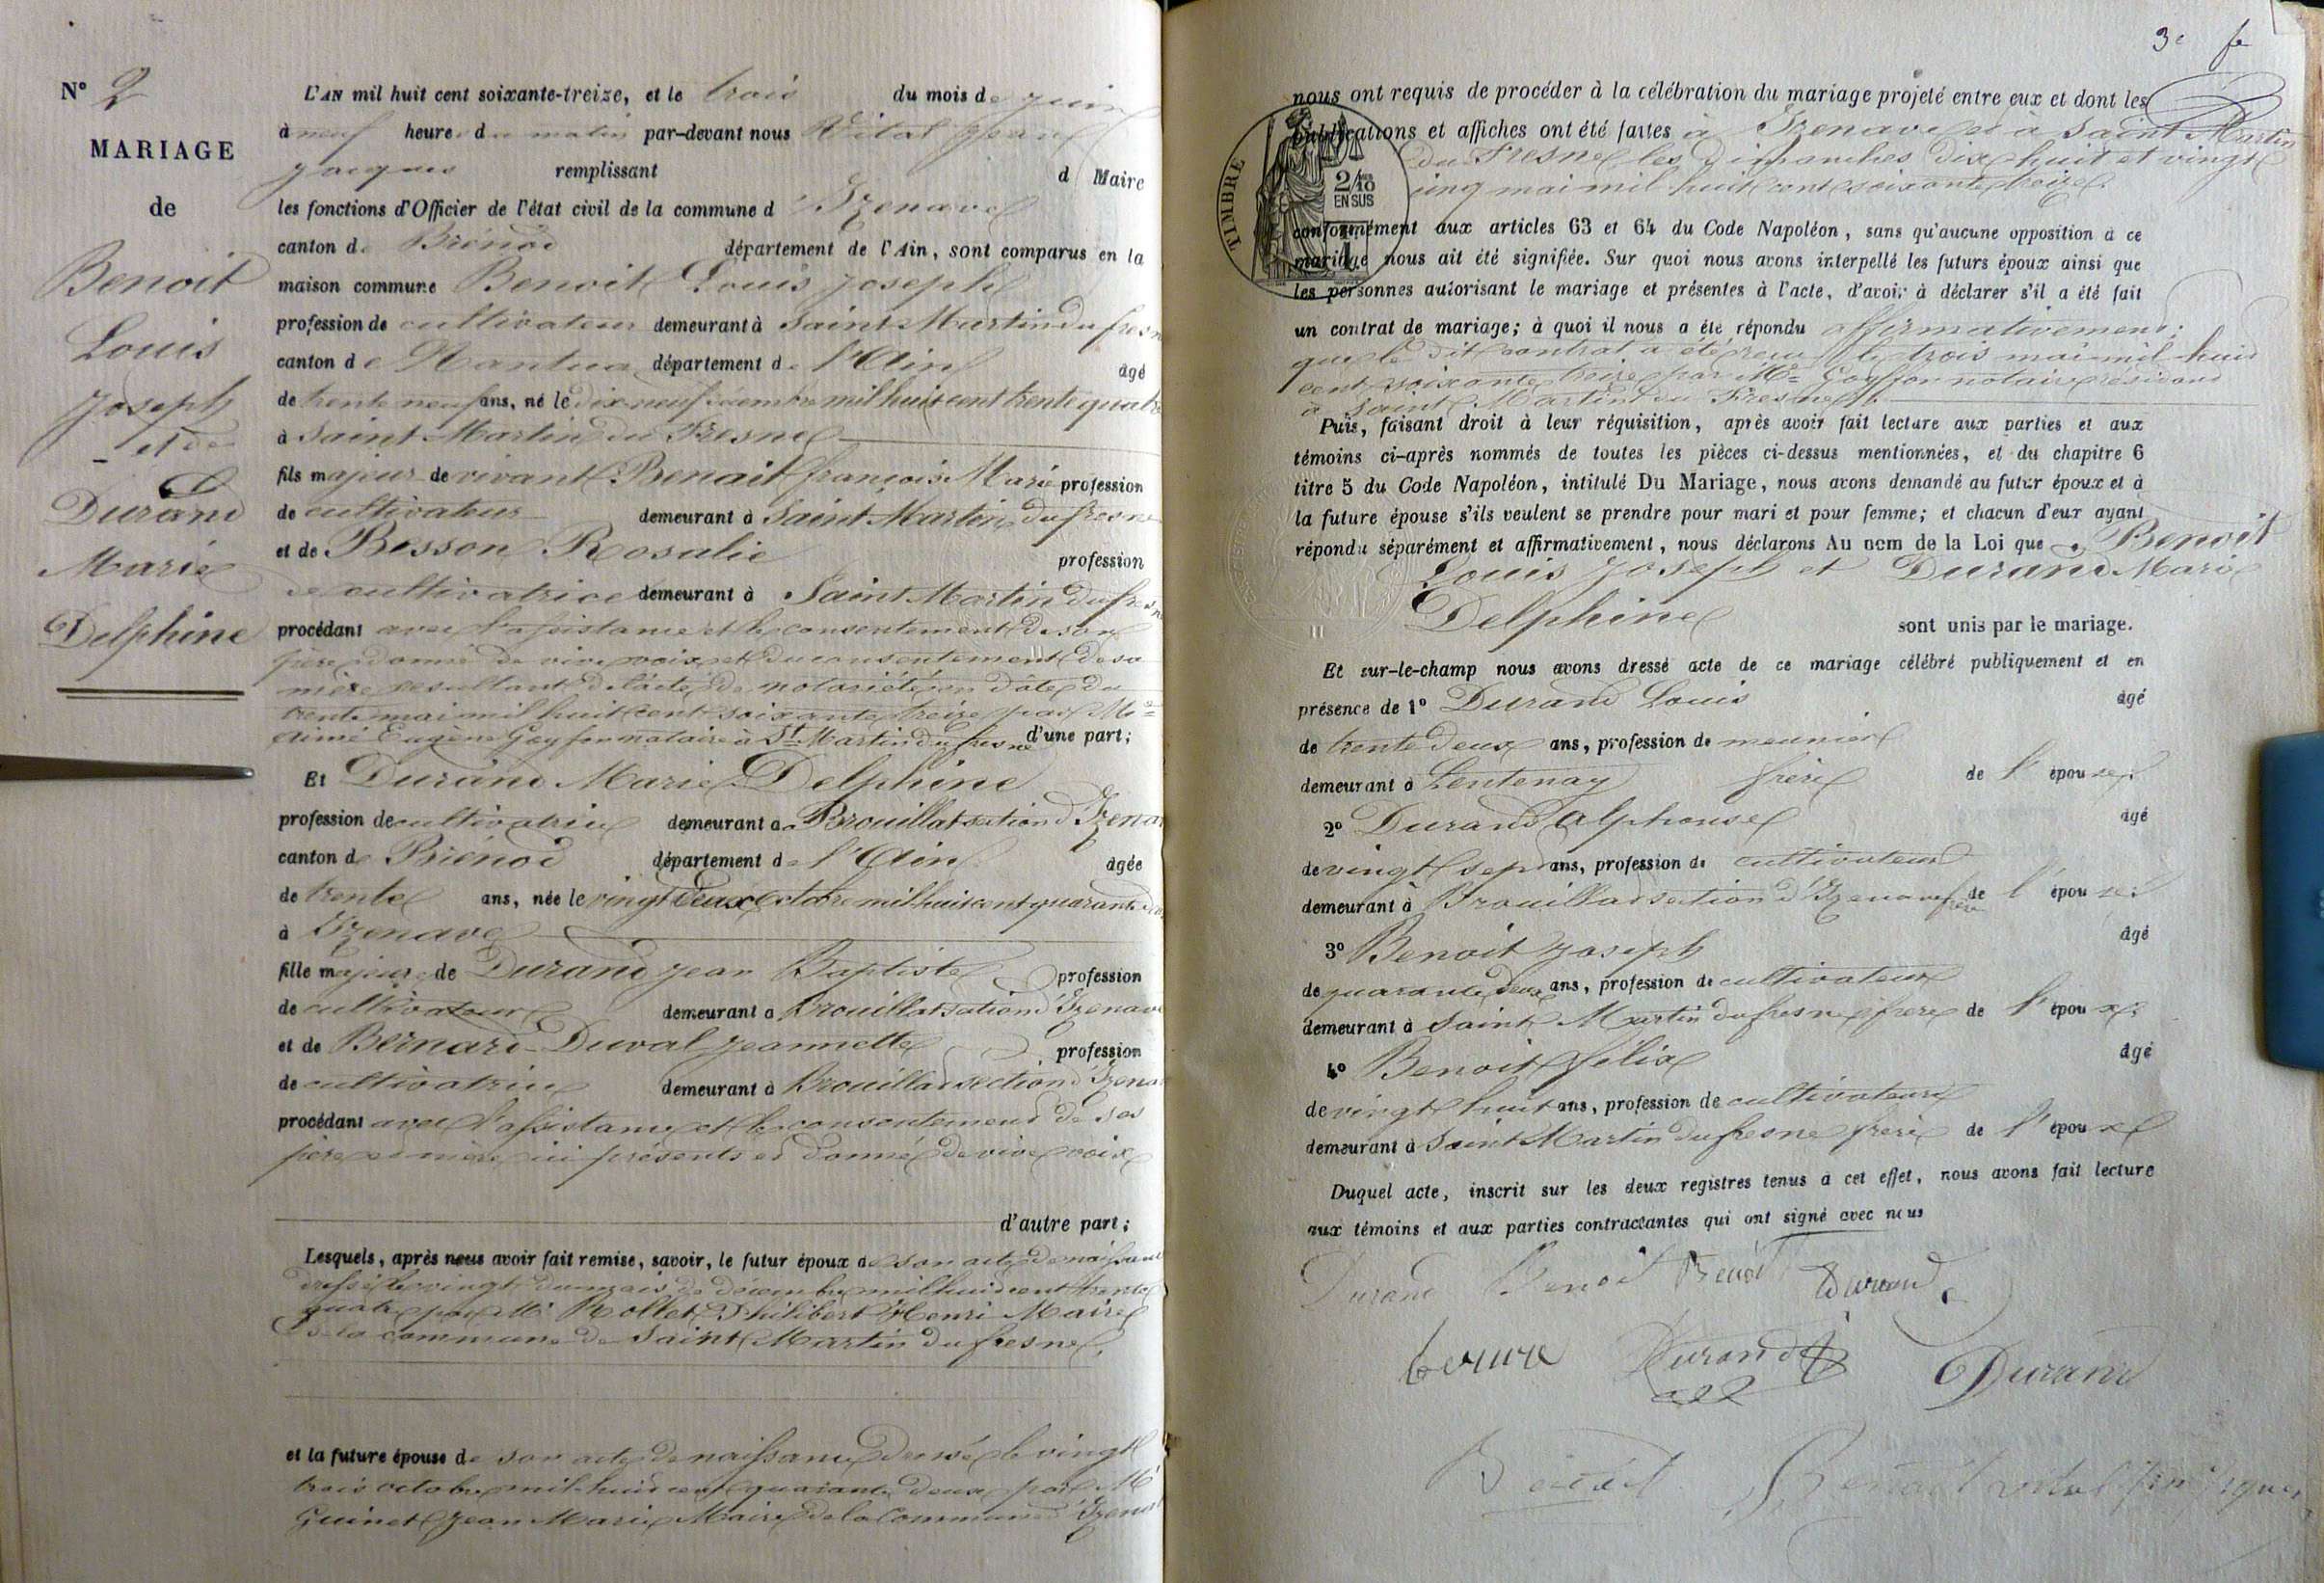 N° 2
MARIAGE
de
Benoit
Louis
Joseph
et de
Durand
Marie
Delphine
L'AN mil huit cent soixante-treize, et le trois du mois de juin
à neuf heures du matin par-devant nous Vital Jean
Jacques remplissant d Maire
les fonctions d'Officier de l'état civil de la commune d'Izenave
canton de Brénod département de l'Ain, sont comparus en la
maison commune Benoit Louis Joseph
profession de cultivateur demeurant à Saint Martin du fresne
canton de Nantua département de l'Ain âgé
de trente neuf ans, né le dix neuf décembre mil huit cent trente quatre
à Saint Martin du Fresne
fils majeur de vivant Benoit françois Marie profession
de cultivateur demeurant à Saint Martin du fresne
et de Besson Rosalie profession
de cultivatrice demeurant à Saint Martin du fresne
procédant avec l'assistance et le consentement de son
père donné de vive voix et du consentement de sa
mère resultant de l'acte de notoriété en date du
trente mai mil huit cent soixante treize par Me
aimé Eugène Goyffon notaire à St Martin du fresne d'une part;
Et Durand Marie Delphine
profession de cultivatrice demeurant à Brouillat section d'Izenave
canton de Brénod département de l'Ain âgée
de trente ans, née le vingt deux octobre mil huit cent quarante deux
à Izenave
fille majeure de Durand Jean Baptiste profession
de cultivateur demeurant à Brouillat section d'Izenave
et de Bernard-Duval Jeannette profession
de cultivatrice demeurant à Brouillad section d'Izenave
procédant avec l'assistance et le consentement de ses
père et mère ici présents et donné de vive voix
d'autre part;
Lesquels, après nous avoir fait remise, savoir, le futur époux de son acte de naissance
dressé le vingt du mois de décembre mil huit cent trente
quatre par Mr Rollet Philibert Henri Maire
de la commune de Saint Martin du fresne.
et la future épouse de son acte de naissance dressé le vingt
trois octobre mil huit cent quarante deux par Mr
Guinet Jean Marie Maire de la Commune d'Izenave
3e fe
nous ont requis de procéder à la célébration du mariage projeté entre eux et dont les
publications et affiches ont été faites à Izenave et à Saint Martin
du Fresne les dimanches dix huit et vingt
cinq mai mil huit cent soixante treize
TIMBRE
2/10
EN SUS
conformément aux articles 63 et 64 du Code Napoléon, sans qu'aucune opposition à ce
mariage nous ait été signifiée. Sur quoi nous avons interpellé les futurs époux ainsi que
les personnes autorisant le mariage et présentes à l'acte, d'avoir à déclarer s'il a été fait
un contrat de mariage; à quoi il nous a été répondu affirmativement;
que le dit contrat a été reçu le trois mai mil huit
cent soixante treize par Me Goyffon notaire résidant
à Saint Martin du Fresne
Puis, faisant droit à leur réquisition, après avoir fait lecture aux parties et aux
témoins ci-après nommés de toutes les pièces ci-dessus mentionnées, et du chapitre 6
titre 5 du Code Napoléon, intitulé Du Mariage, nous avons demandé au futur époux et à
la future épouse s'ils veulent se prendre pour mari et pour femme; et chacun d'eux ayant
répondu séparément et affirmativement, nous déclarons Au nom de la Loi que Benoit
Louis Joseph et Durand Marie
Delphine
sont unis par le mariage.
Et sur-le-champ nous avons dressé acte de ce mariage célébré publiquement et en
présence de 1° Durand Louis âgé
de trente deux ans, profession de meunier
demeurant à Lentenay frère de l'épouse;
2° Durand Alphonse âgé
de vingt sept ans, profession de cultivateur
demeurant à Brouillad section d'Izenave frère de l'épouse;
3° Benoit Joseph âgé
de quarante deux ans, profession de cultivateur
demeurant à Saint Martin du fresne frère de l'époux;
4° Benoit félix âgé
de vingt huit ans, profession de cultivateur
demeurant à Saint Martin du fresne frère de l'époux
Duquel acte, inscrit sur les deux registres tenus à cet effet, nous avons fait lecture
aux témoins et aux parties contractantes qui ont signé avec nous
Durand Benoit Benoit Durand
Durand Durand
Benoit Benoit Vital